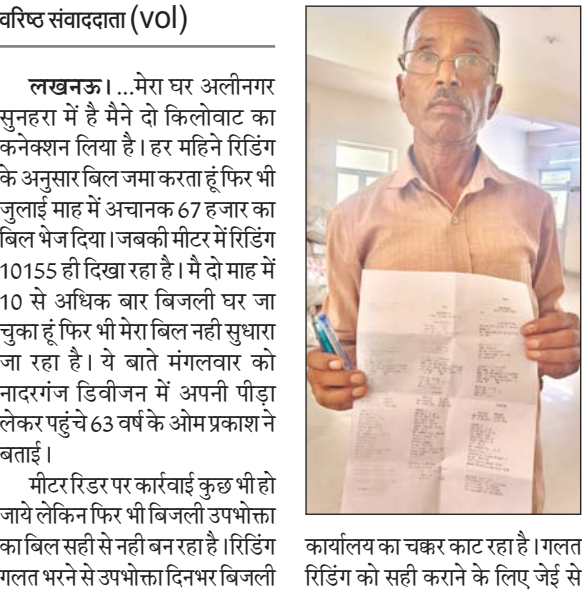 वरिष्ठ संवाददाता (vol)
लखनऊ। ...मेरा घर अलीनगर
सुनहरा में है मैने दो किलोवाट का
कनेक्शन लिया है। हर महिने रिडिंग
के अनुसार बिल जमा करता हूं फिर भी
जुलाई माह में अचानक 67 हजार का
बिल भेज दिया। जबकी मीटर में रिडिंग
10155 ही दिखा रहा है। मै दो माह में
10 से अधिक बार बिजली घर जा
चुका हूं फिर भी मेरा बिल नही सुधारा
जा रहा है। ये बाते मंगलवार को
नादरगंज डिवीजन में अपनी पीड़ा
लेकर पहुंचे 63 वर्ष के ओम प्रकाश ने
बताई।
मीटर रिडर पर कार्रवाई कुछ भी हो
जाये लेकिन फिर भी बिजली उपभोक्ता
का बिल सही से नही बन रहा है। रिडिंग
गलत भरने से उपभोक्ता दिनभर बिजली
कार्यालय का चक्कर काट रहा है। गलत
रिडिंग को सही कराने के लिए जेई से